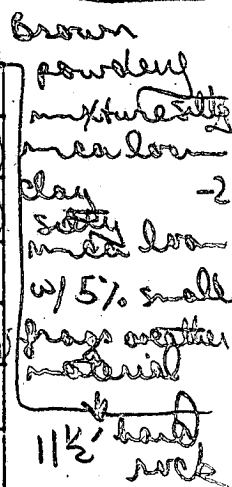 Brown
powdery
mixture silty
mica loam
clay -2
silty
mica loam
w/ 5% small
frags weather
material
11½' hard
rock